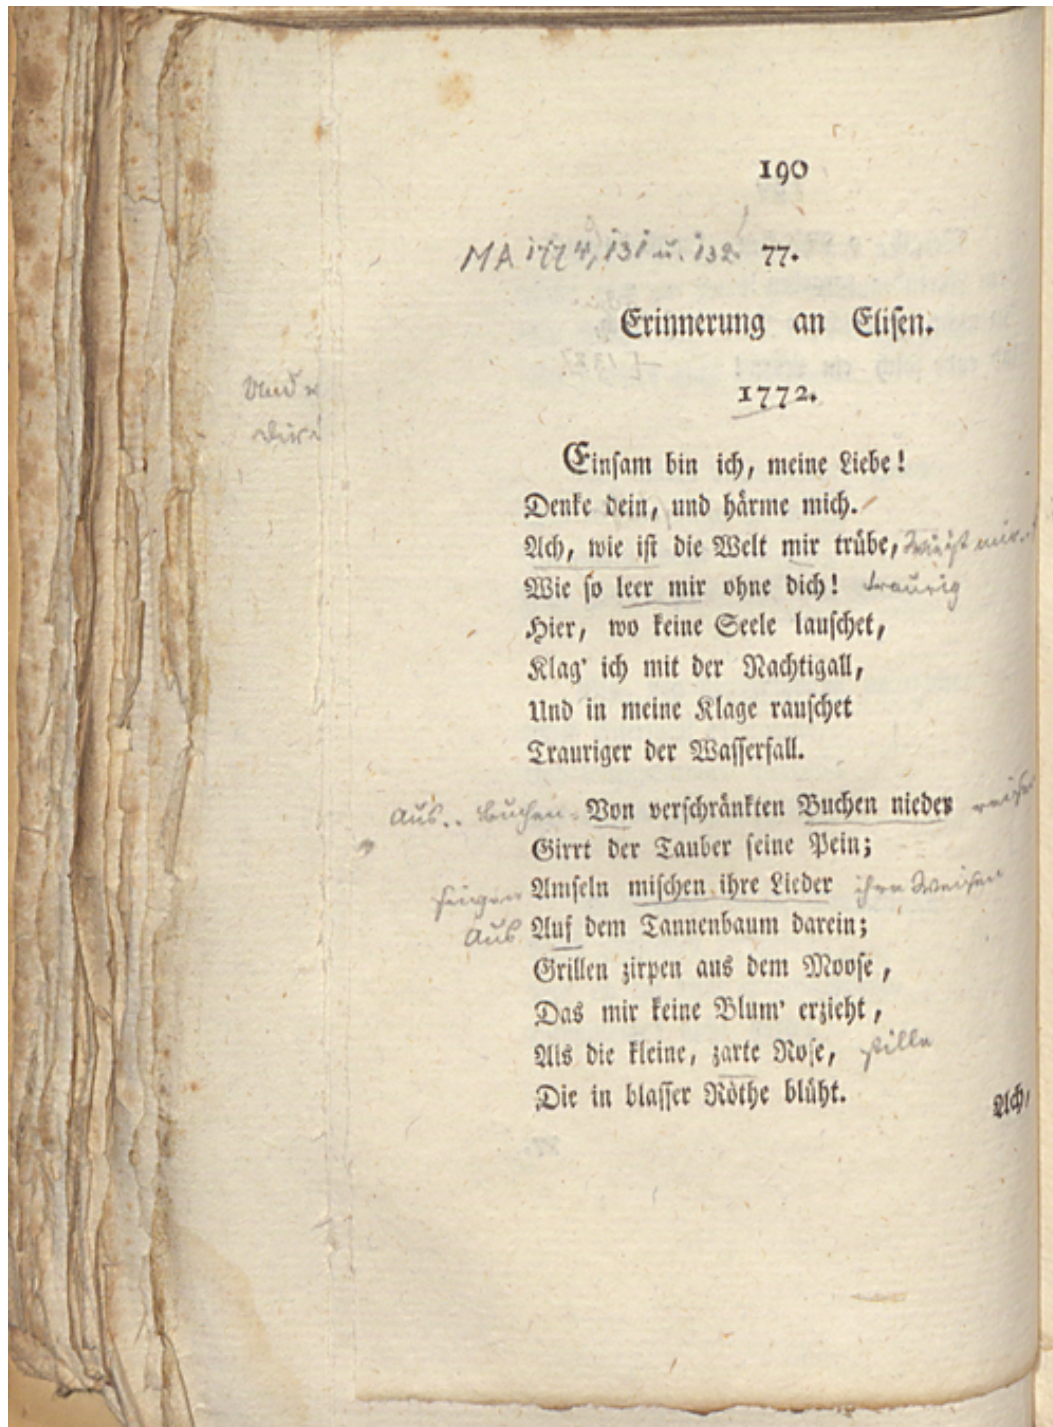 190
MA 1774, 131 u. 132. 77.
Erinnerung an Elisen.
1772.
Und
Einsam bin ich, meine Liebe!
Denke dein, und härme mich.
Ach, wie ist die Welt mir trübe, Wie ist mir..
Wie so leer mir ohne dich! traurig
Hier, wo keine Seele lauschet,
Klag' ich mit der Nachtigall,
Und in meine Klage rauschet
Trauriger der Wasserfall.
Aus.. Buchen Von verschränkten Buchen nieder
Girrt der Tauber seine Pein;
singen Amseln mischen ihre Lieder ihre Weisen
Aus Auf dem Tannenbaum darein;
Grillen zirpen aus dem Moose,
Das mir keine Blum' erzieht,
Als die kleine, zarte Rose, stille
Die in blasser Röthe blüht.
Ach,